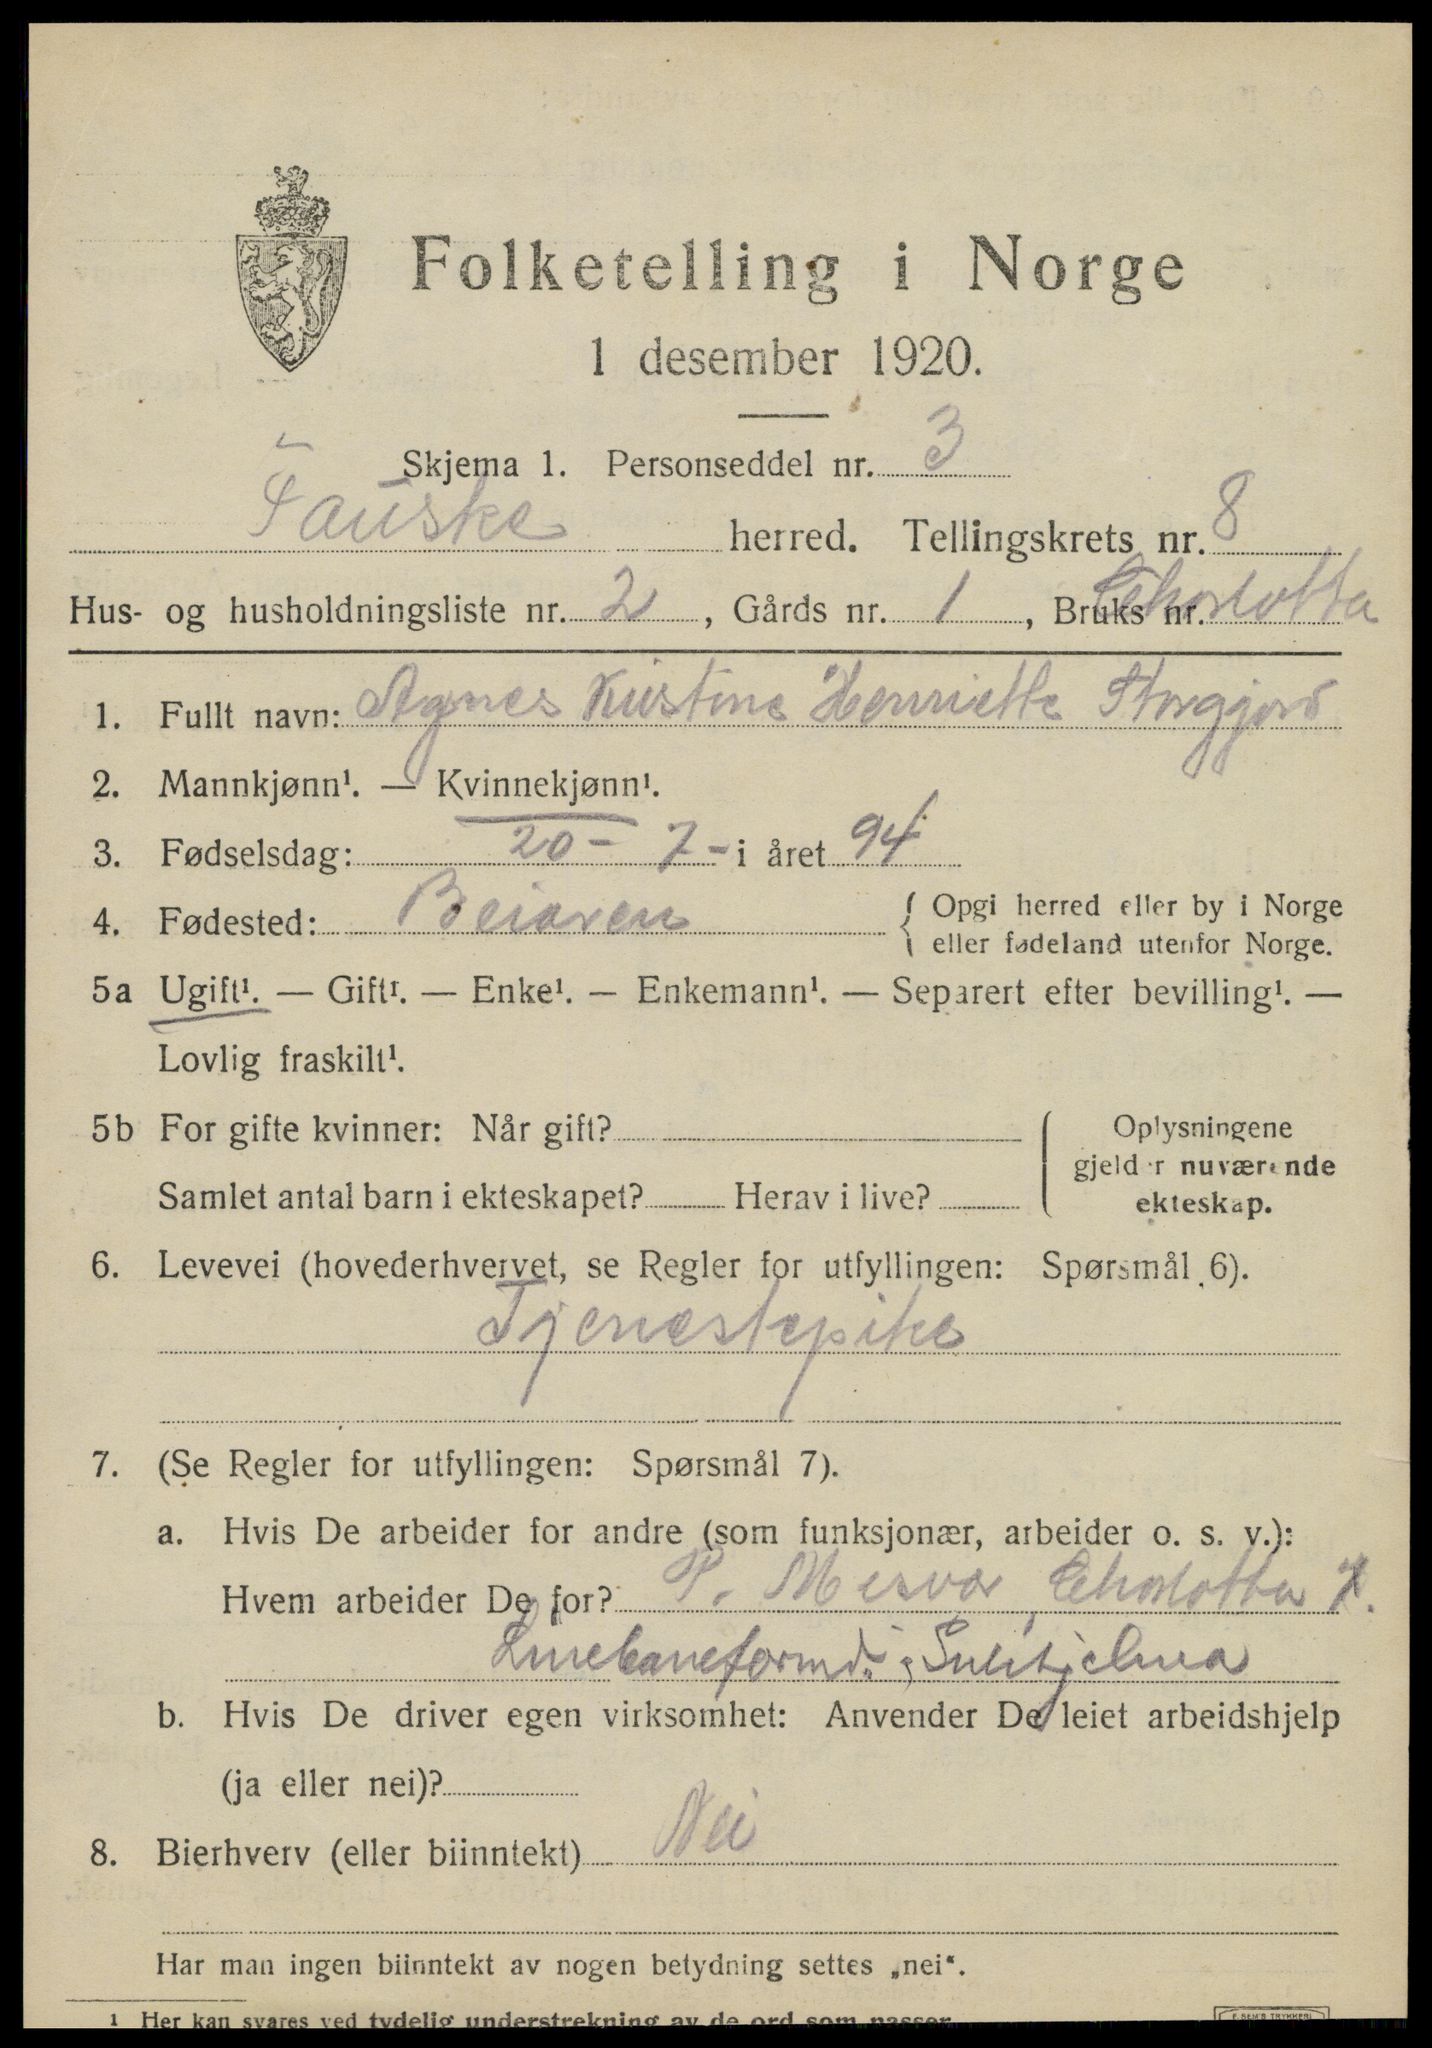 Folketelling i Norge
1 desember 1920.
Skjema 1. Personseddel nr. 3
Fauske herred. Tellingskrets nr. 8
Hus- og husholdningsliste nr. 2, Gårds nr. 1, Bruks nr. Charlotta
1. Fullt navn: Agnes Kristine Henriette Storgjord
2. Mannkjønn¹. — Kvinnekjønn¹.
3. Fødselsdag: 20 - 7 - i året 94
4. Fødested: Beiaren { Opgi herred eller by i Norge
eller fødeland utenfor Norge.
5a Ugift¹. — Gift¹. — Enke¹. — Enkemann¹. — Separert efter bevilling¹. —
Lovlig fraskilt¹.
5b For gifte kvinner: Når gift?
Samlet antal barn i ekteskapet? Herav i live?
Oplysningene
gjelder nuværende
ekteskap.
6. Levevei (hovederhvervet, se Regler for utfyllingen: Spørsmål 6).
Tjenestepike
7. (Se Regler for utfyllingen: Spørsmål 7).
a. Hvis De arbeider for andre (som funksjonær, arbeider o. s. v.):
Hvem arbeider De for? P. Charlotta
Linebaneformd. Sulitjelma
b. Hvis De driver egen virksomhet: Anvender De leiet arbeidshjelp
(ja eller nei)?
8. Bierhverv (eller biinntekt) Nei
Har man ingen biinntekt av nogen betydning settes „nei“.
¹ Her kan svares ved tydelig understrekning av de ord som passer.